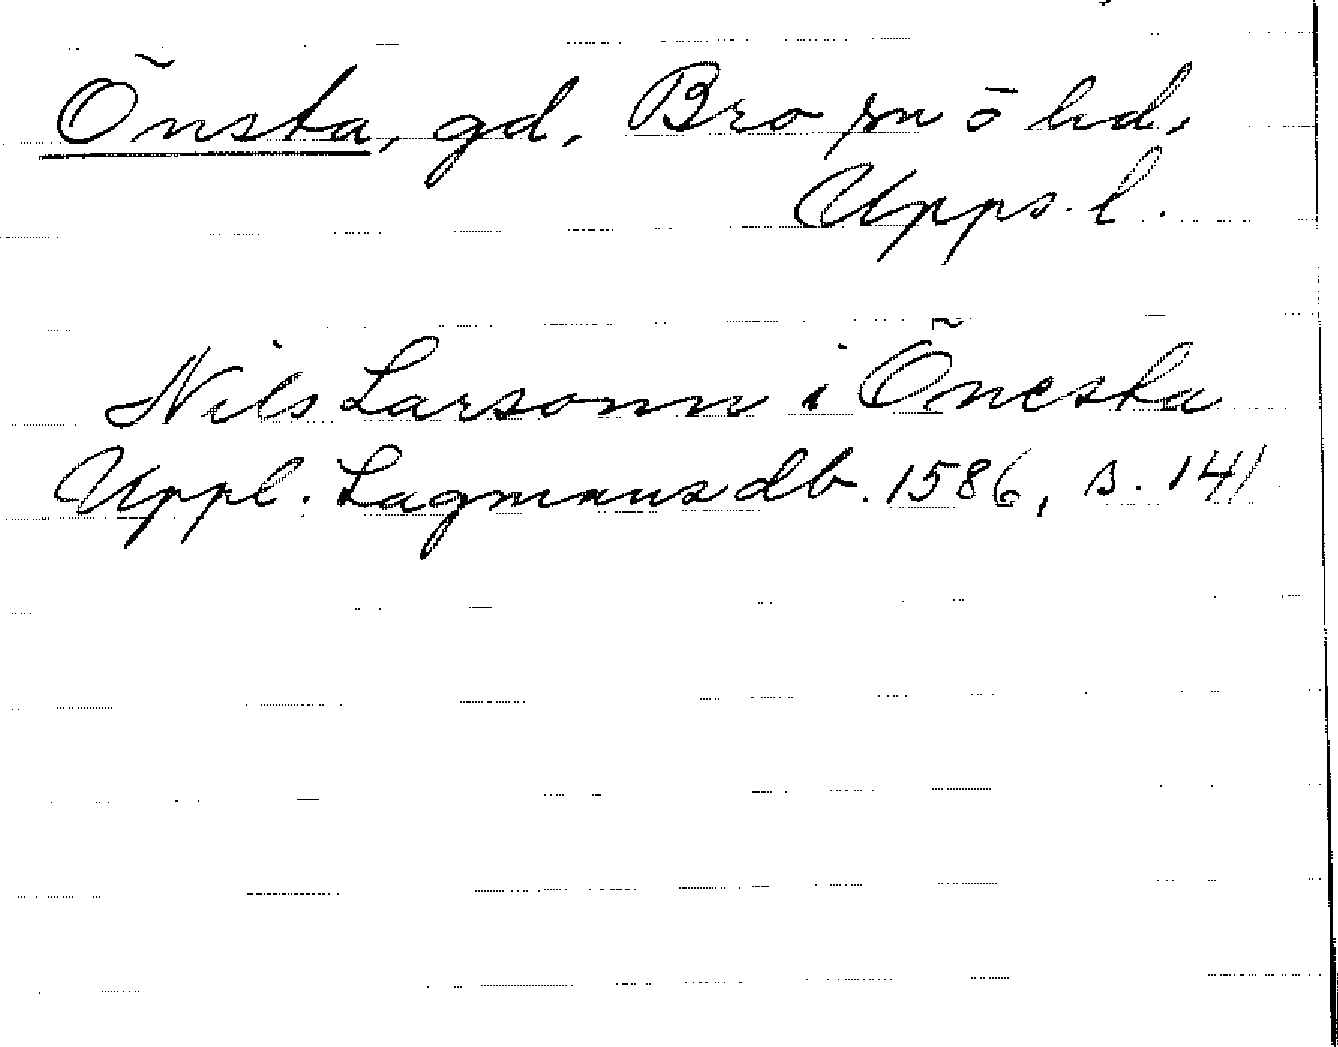 Önsta, gd, Bro sn ö hd,
Upps. l.
Nils Larsonn i Önesta
Uppl. Lagmansdb. 1586, s. 141